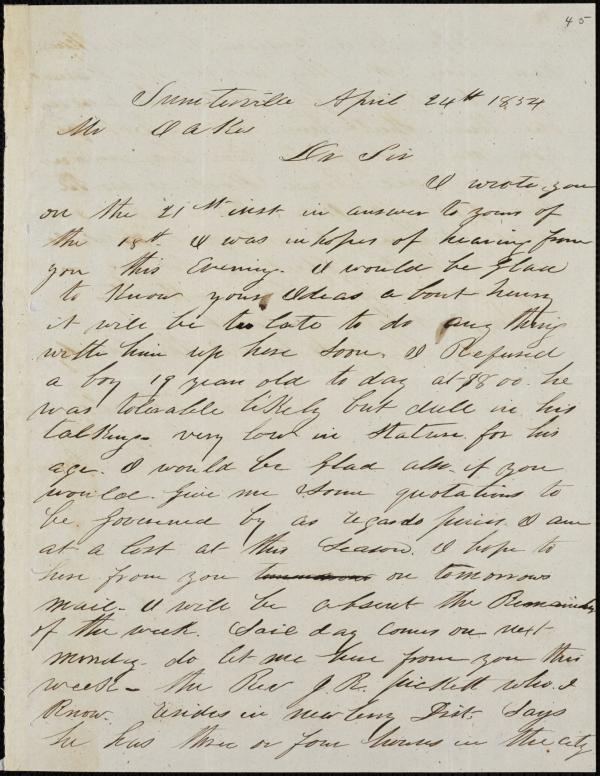 45
Sumterville April 24th 1854
Mr Oakes
Dr Sir
I wrote you
on the 21st inst. in answer to yours of
the 18th. I was in hopes of hearing from
you this Evening. I would be Glad
to Know your Ideas about henry
it will be to late to do any thing
with him up here soon. I Refused
a boy 19 years old to day at $800. he
was tolerable likely but dull in his
talking very low in stature for his
age. I would be Glad also if you
would Give me some quotations to
be Governed by as regards prices I am
at a lost at this Season. I hope to
here from you on tomorrows
mail. I will be absent the Remainder
of the week. Sale day comes on next
monday. do let me here from you this
week - the Rev J. R. Pickett who I
Know. resides in newberry Dist. Says
he has three or four houses in the city